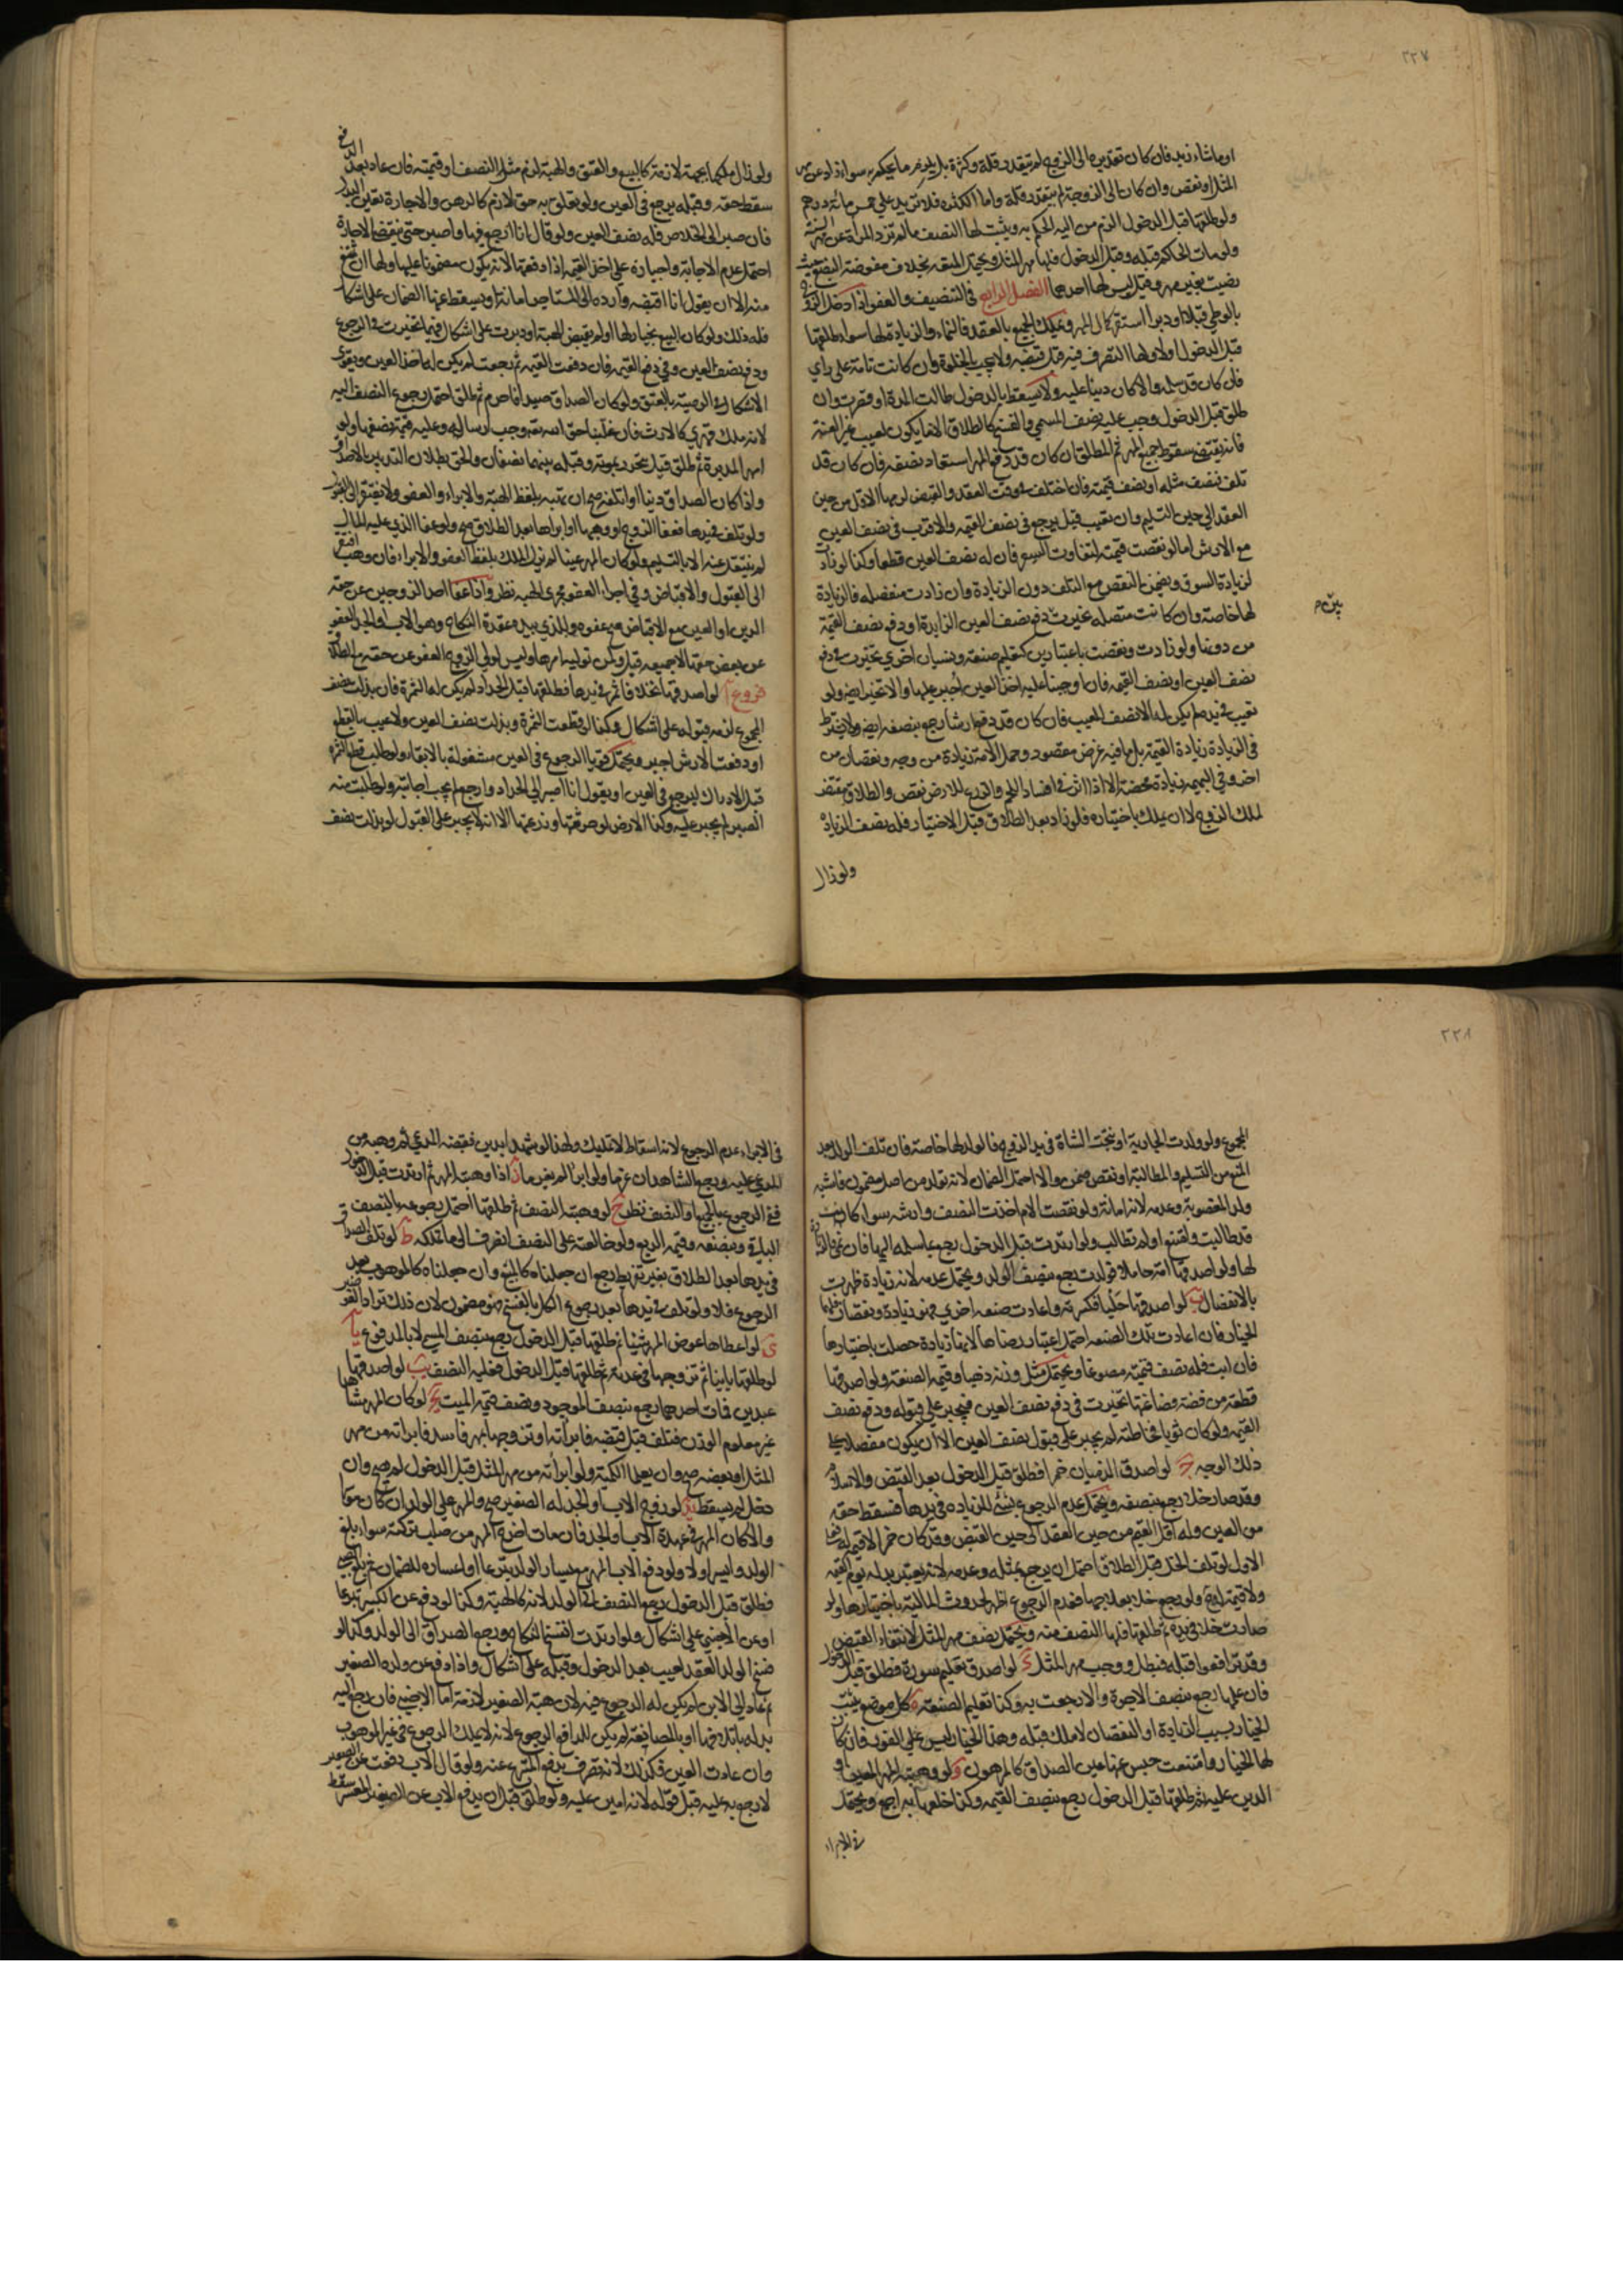 ٢٢٧
او ما شاء زيد فان كان تقديره الى الزوج لم يتقدر قلة وكثرة بل يلزم ما يحكم به سواء زاد عن مهر
المثل او نقص وان كان الى الزوجة لم يتقدر قلة واما الكثرة فلا تزيد على خمس مائة درهم
ولو طلقها قبل الدخول الزم من اليه الحكم به ويثبت لها النصف ما لم تزد المرأة عن مهر السنة
ولو مات الحاكم قبله وقبل الدخول فلها مهر المثل ويحتمل المتعة بخلاف مفوضة البضع حيث
رضيت بغير مهر وقيل ليس لها احدهما الفصل الرابع في التنصيف والعفو اذا دخل الزوج
بالوطي قبلا او دبرا استقر كمال المهر وتملك الجميع بالعقد فالنماء والزيادة لها سواء طلقها
قبل الدخول او لا ولها التصرف فيه قبل قبضه ولا يجب بالخلوة وان كانت تامة على راي
فان كان قد سلمه والا كان دينا عليه ولا يسقط بالدخول طالت المدة او قصرت وان
طلق قبل الدخول وجب عليه نصف المسمى والفسخ كالطلاق الا ما يكون لعيب غير العنة
فانه يقتضي سقوط جميع المهر ثم المطلق ان كان قد دفع المهر استعاد نصفه فان كان قد
تلف فنصف مثله او نصف قيمته فان اختلف في وقت العقد والقبض لزمها الاقل من حين
العقد الى حين التسليم وان تعيب قيل يرجع في نصف القيمة والاقرب في نصف العين
مع الارش اما لو نقصت قيمته لتفاوت السعر فان له نصف العين قطعا وكذا لو زادت
لزيادة السوق ويضمن النقص مع التلف دون الزيادة وان زادت منفصلة فالزيادة
لها خاصة وان كانت متصلة تخيرت في دفع نصف العين الزايدة او دفع نصف القيمة
من دونها ولو زادت ونقصت باعتبارين كتعليم صنعة ونسيان اخرى تخيرت في دفع
نصف العين او نصف القيمة فان اوجبنا عليه اخذ العين اجبر عليها والا تخير ايضا ولو
تعيب في يده لم يكن له الا نصف المعيب فان كان قد دفع ارشا رجع بنصفه ايضا ولا يشترط
في الزيادة زيادة القيمة بل ما فيه غرض مقصود وحمل الامة زيادة من وجه ونقصان من
اخر وفي البهيمة زيادة محضة الا اذا اثر في افساد اللحم والزرع للارض نقص والطلاق مقتض
لملك الزوج لا ان يملك باختياره فلو زاد بعد الطلاق قبل الاختيار فله نصف الزيادة
ولو زال
ولو زال ملكها بجهة لازمة كالبيع والعتق والهبة لزم مثل النصف او قيمته فان عاد بعد الدفع
سقط حقه وقبله يرجع في العين ولو تعلق به حق لازم كالرهن والاجارة تعين البدل
فان صبر الى الخلاص فله نصف العين ولو قال انا ارجع فيها واصبر حتى تنقضي الاجارة
احتمل عدم الاجابة واجباره على اخذ القيمة اذا دفعتها لانه يكون مضمونا عليها ولها ان تمتنع
منه الا ان يقول انا اقبضه وارده الى المستاجر امانة او يسقط عنها الضمان على اشكال
فله ذلك ولو كان البيع بخيار لها او لم يقبض الهبة او دبرت على اشكال فيهما تخيرت في الرجوع
ودفع نصف العين وفي دفع القيمة فان دفعت القيمة ثم رجعت لم يكن له اخذ العين ويقوى
الاشكال في الوصية بالعتق ولو كان الصداق صيدا فاحرم ثم طلق احتمل رجوع النصف اليه
لانه ملك قهري كالارث فان غلبنا حق الله تعالى وجب ارساله وعليه قيمة نصفها ولو
امهر المدبرة ثم طلق قيل تتحرر بموته وقبله بينهما نصفان والحق بطلان التدبير بالاصداق
واذا كان الصداق دينا او اتلفته صح ان تهبه بلفظ الهبة والابراء والعفو ولا يفتقر الى القبول
ولو تلف في يدها فعفا الزوج او وهبها او ابراها بعد الطلاق صح ولو عفا الذي عليه المال
لم ينتقل عنه الا بالتسليم ولو كان المهر عينا لم يزل الملك بلفظ العفو والابراء فان وهب افتقر
الى القبول والاقباض وفي اجراء العفو مجرى الهبة نظر واذا عفا احد الزوجين عن حقه
الدين او العين مع الاقباض صح عفوه وللذي بيده عقدة النكاح وهو الاب او الجد العفو
عن بعض حقها لا جميعه قيل ولمن توليه امرها وليس لولي الزوج العفو عن حقه مع الطلاق
فروع آ لو اصدقها نخلا فاثمر في يدها فطلقها قبل الجداد لم يكن له الثمرة فان بذلت نصف
المجموع لزمه قبوله على اشكال وكذا لو قطعت الثمرة وبذلت نصف العين ولا عيب بالقطع
او دفعت الارش اجبر ويحتمل قويا الرجوع في العين مشغولة بالابقاء ولو طلب قطع الثمرة
قبل الادراك ليرجع في العين او يقول انا اصبر الى الجداد وارجع لم يجب اجابته ولو طلبت منه
الصبر لم يجبر عليه وكذا الارض لو حرثتها او زرعتها الا انه لا يجبر على القبول لو بذلت نصف
٢٢٨
المجموع ولو ولدت الجارية او نتجت الشاة في يد الزوج فالولد لها خاصة فان تلف الولد بعد
المنع من التسليم والمطالبة او نقص ضمن والا احتمل الضمان لانه تولد من اصل مضمون فاشبه
ولد المغصوبة وعدمه لانه امانة ولو نقصت الام اخذت النصف وارشه سواء كانت
قد طالبت ولمنع او لم تطالب ولو ارتدت قبل الدخول رجع بما سلمه اليها
لها ولو اصدقها امة حاملا فولدت رجع بنصف الولد ويحتمل عدمه لانه زيادة ظهرت
بالانفصال ب لو اصدقها حليا فكسرته واعادت صنعة اخرى فهو زيادة ونقصان فلهما
الخيار فان اعادت تلك الصنعة احتمل اعتبار رضاها لانها زيادة حصلت باختيارها
فان ابت فله نصف قيمته مصوغا ويحتمل مثل وزنه ذهبا وقيمة الصنعة ولو اصدقها
قطعة من فضة فصاغتها تخيرت في دفع نصف العين فيجبر على قبوله ودفع نصف
القيمة ولو كان ثوبا فخاطته لم يجبر على قبول نصف العين الا ان يكون مفصلا على
ذلك الوجه ج لو اصدق الذميان خمرا فطلق قبل الدخول بعد القبض والاسلام
وقد صار خلا رجع بنصفه ويحتمل عدم الرجوع بشيء للزيادة في يدها فسقط حقه
من العين وله اقل القيم من حين العقد الى حين القبض وقد كان خمرا لا قيمة له فعلى
الاول لو تلف الخل قبل الطلاق احتمل ان يرجع بمثله وعدمه لانه يعتبر بدله يوم القبض
ولا قيمة له ولو رجع خلا بعد الطلاق فعدم الرجوع اظهر لحدوث المالية باختيارها ولو
صارت خلا في يده ثم طلقها فلها النصف منه ويحتمل نصف مهر المثل لانتفاء القبض
وقد ترافعوا قبله فبطل ووجب مهر المثل د لو اصدق تعليم سورة فطلق قبل الدخول
فان علمها رجع بنصف الاجرة والا رجعت به وكذا تعليم الصنعة ه كل موضع يثبت
الخيار بسبب الزيادة او النقصان لا ملك قبله وهذا الخيار ليس على الفور فان كان
لها الخيار وامتنعت حبس عنها عين الصداق كالمرهون و لو وهبته المهر المعين او
الدين عليه ثم طلقها قبل الدخول رجع بنصف القيمة وكذا خلعها به اجمع ويحتمل
في الابراء
في الابراء عدم الرجوع لانه اسقاط لا تمليك ولهذا لو شهدا بدين فقبضه المدعي ثم وهبه من
المدعى عليه ورجع الشاهدان غرما ولو ابرأ لم يغرما ز اذا وهبته المهر ثم ارتدت قبل الدخول
ففي الرجوع بالجميع او النصف نظر ح لو وهبته النصف ثم طلقها احتمل رجوعه بالنصف
الباقي وبنصفه وقيمة الربع ولو خالعته على النصف انصرف الى ما تملكه ط لو تلف الصداق
في يدها بعد الطلاق بغير تفريط رجع ان جعلناه كالمبيع وان جعلناه كالموهوب بعد
الرجوع فلا ولو تلف في يدها بعد رجوع الكل بالفسخ فهو مضمون لان ذلك تراد
ى لو اعطاها عوض المهر شيئا ثم طلقها قبل الدخول رجع بنصف المسمى لا بالمدفوع يا
لو طلقها باينا ثم تزوجها في عدته ثم طلقها قبل الدخول فعليه النصف يب لو اصدقها
عبدين فمات احدهما رجع بنصف الموجود ونصف قيمة الميت يج لو كان المهر مشاهدا
غير معلوم الوزن فتلف قبل قبضه فابرأته او تزوجها بمهر فاسد فابرأته من مهر
المثل او بعضه صح وان يعلما الكمية ولو ابرأته من مهر المثل قبل الدخول لم يصح وان
دخل لم يسقط يد لو زوج الاب او الجد له الصغير صح والمهر على الولد ان كان موسرا
والا كان المهر في عهدة الاب او الجد فان مات اخرج المهر من صلب تركته سواء بلغ
الولد وايسر او لا ولو دفع الاب المهر مع يسار الولد تبرعا او اعساره للضمان ثم بلغ الصبي
فطلق قبل الدخول رجع النصف الى الولد لانه كالهبة وكذا لو دفع عن الكبير تبرعا
او عن الاجنبي على اشكال ولو ارتدت انفسخ النكاح ورجع الصداق الى الولد وكذا لو
فسخ الولد العقد لعيب بعد الدخول وقبله على اشكال واذا دفع عن ولده الصغير
ثم عاد الى الابن لم يكن له الرجوع فيه لان هبة الصغير لازمة اما الاجنبي فان رجع اليه
بدله باتلافها او بالمصانعة لم يكن للدافع الرجوع لانه لا يملك الرجوع في غير الموهوب
وان عادت العين فكذلك لانه تصرف يدفع المتبرع عنه ولو قال الاب دفعت عن الصغير
لا رجع به عليه قبل قوله لانه امين عليه ولو طلق قبل ان يدفع الاب عن الصغير المعسر سقط